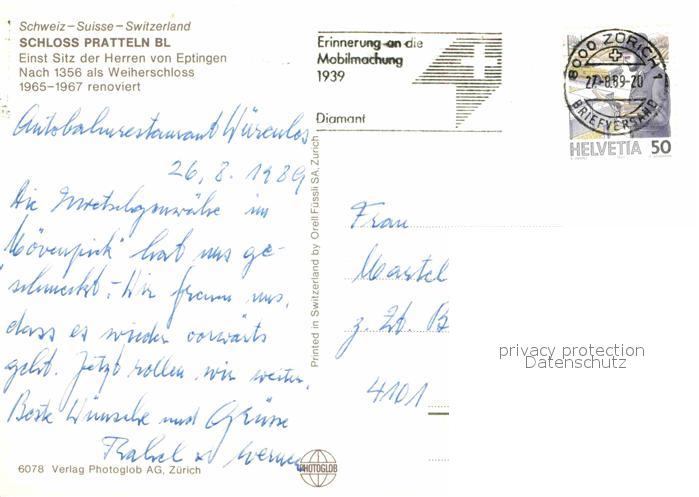 Schweiz – Suisse – Switzerland
SCHLOSS PRATTELN BL
Einst Sitz der Herren von Eptingen
Nach 1356 als Weiherschloss
1965–1967 renoviert
Erinnerung an die
Mobilmachung
1939
Diamant
8000 ZÜRICH 1
27-8.89-20
BRIEFVERSAND
HELVETIA 50
Autobahnrestaurant Würenlos
26. 8. 1989
Die Zwetschgenwähe im
"Mövenpick" hat uns ge-
schmeckt. - Wir freuen uns,
dass es wieder vorwärts
geht. Jetzt rollen wir weiter.
Beste Wünsche und Grüsse
Werner
Frau
z. Zt. B
4101
Printed in Switzerland by Orell Füssli SA, Zürich
privacy protection
Datenschutz
6078 Verlag Photoglob AG, Zürich
PHOTOGLOB